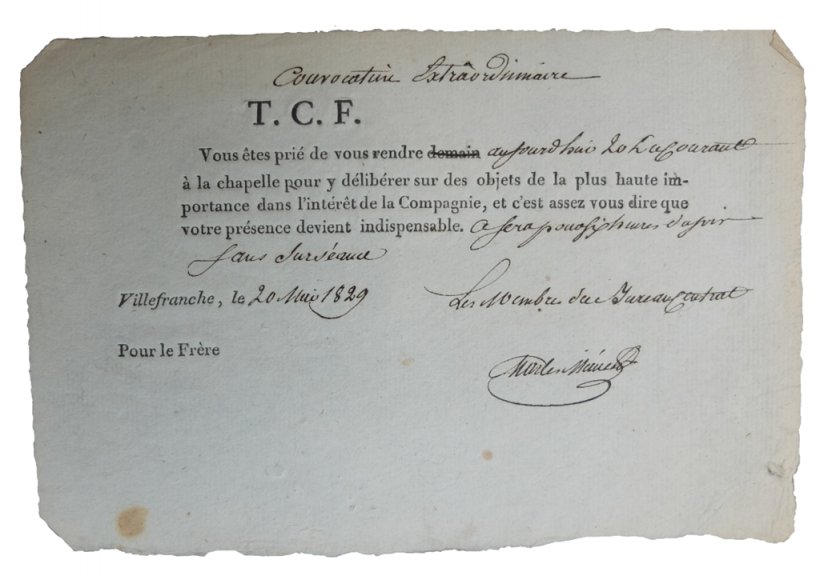 Convocation Extraordinaire
T. C. F.
Vous êtes prié de vous rendre demain aujourd'hui 20 du Courant
à la chapelle pour y délibérer sur des objets de la plus haute im-
portance dans l'intérêt de la Compagnie, et c'est assez vous dire que
votre présence devient indispensable. Ce sera pour six heures du soir
sans surséance
Villefranche, le 20 Mai 1829
Les Membres du Bureau central
Pour le Frère